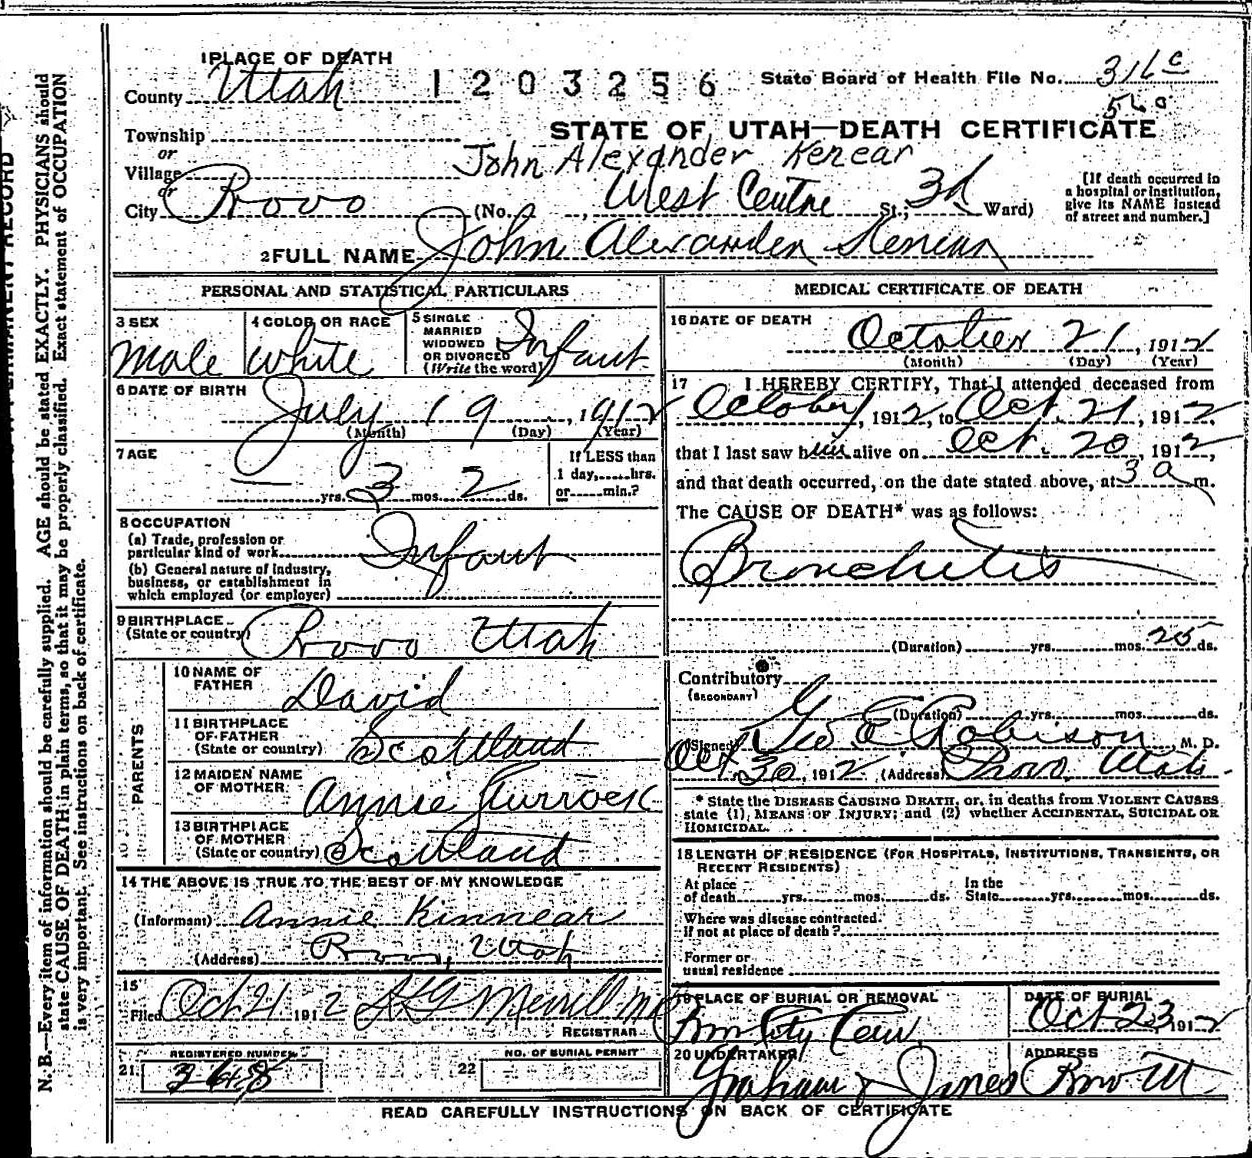 1 PLACE OF DEATH
County Utah
1203256
State Board of Health File No. 316 c
560
STATE OF UTAH—DEATH CERTIFICATE
Township
or
Village
or
City Provo
John Alexander Kenear
(No. West Centre St.; 3d Ward)
[If death occurred in
a hospital or institution,
give its NAME instead
of street and number.]
2 FULL NAME John Alexander Kenear
PERSONAL AND STATISTICAL PARTICULARS
3 SEX
male
4 COLOR OR RACE
White
5 SINGLE
MARRIED
WIDOWED
OR DIVORCED
(Write the word) Infant
6 DATE OF BIRTH
July 19, 1912
(Month) (Day) (Year)
7 AGE
— yrs. 3 mos. 2 ds.
If LESS than
1 day,......hrs.
or......min.?
8 OCCUPATION
(a) Trade, profession or
particular kind of work Infant
(b) General nature of industry,
business, or establishment in
which employed (or employer)
9 BIRTHPLACE
(State or country) Provo Utah
PARENTS
10 NAME OF
FATHER David
11 BIRTHPLACE
OF FATHER
(State or country) Scotland
12 MAIDEN NAME
OF MOTHER Annie Sturrock
13 BIRTHPLACE
OF MOTHER
(State or country) Scotland
14 THE ABOVE IS TRUE TO THE BEST OF MY KNOWLEDGE
(Informant) Annie Kinnear
(Address) Provo, Utah
15
Filed Oct 21 1912 Merrill
REGISTRAR
21 REGISTERED NUMBER
22 NO. OF BURIAL PERMIT
MEDICAL CERTIFICATE OF DEATH
16 DATE OF DEATH
October 21, 1912
(Month) (Day) (Year)
17 I HEREBY CERTIFY, That I attended deceased from
October, 1912, to Oct. 21, 1912,
that I last saw him alive on Oct. 20, 1912,
and that death occurred, on the date stated above, at 3 a m.
The CAUSE OF DEATH* was as follows:
Bronchitis
(Duration) yrs. mos. 25 ds.
Contributory
(SECONDARY)
(Duration) yrs. mos. ds.
(Signed) Geo E Robison M. D.
Oct 30, 1912 (Address) Provo. Utah.
* State the DISEASE CAUSING DEATH, or, in deaths from VIOLENT CAUSES
state (1), MEANS OF INJURY; and (2) whether ACCIDENTAL, SUICIDAL OR
HOMICIDAL.
18 LENGTH OF RESIDENCE (FOR HOSPITALS, INSTITUTIONS, TRANSIENTS, OR
RECENT RESIDENTS)
At place
of death yrs. mos. ds.
In the
State yrs. mos. ds.
Where was disease contracted.
if not at place of death?
Former or
usual residence
19 PLACE OF BURIAL OR REMOVAL
Prov City Cem.
DATE OF BURIAL
Oct 23 1912
20 UNDERTAKER
Graham & Jones
ADDRESS
Provo Ut
READ CAREFULLY INSTRUCTIONS ON BACK OF CERTIFICATE
N. B.—Every item of information should be carefully supplied. AGE should be stated EXACTLY. PHYSICIANS should
state CAUSE OF DEATH in plain terms, so that it may be properly classified. Exact statement of OCCUPATION
is very important. See instructions on back of certificate.
RECORD